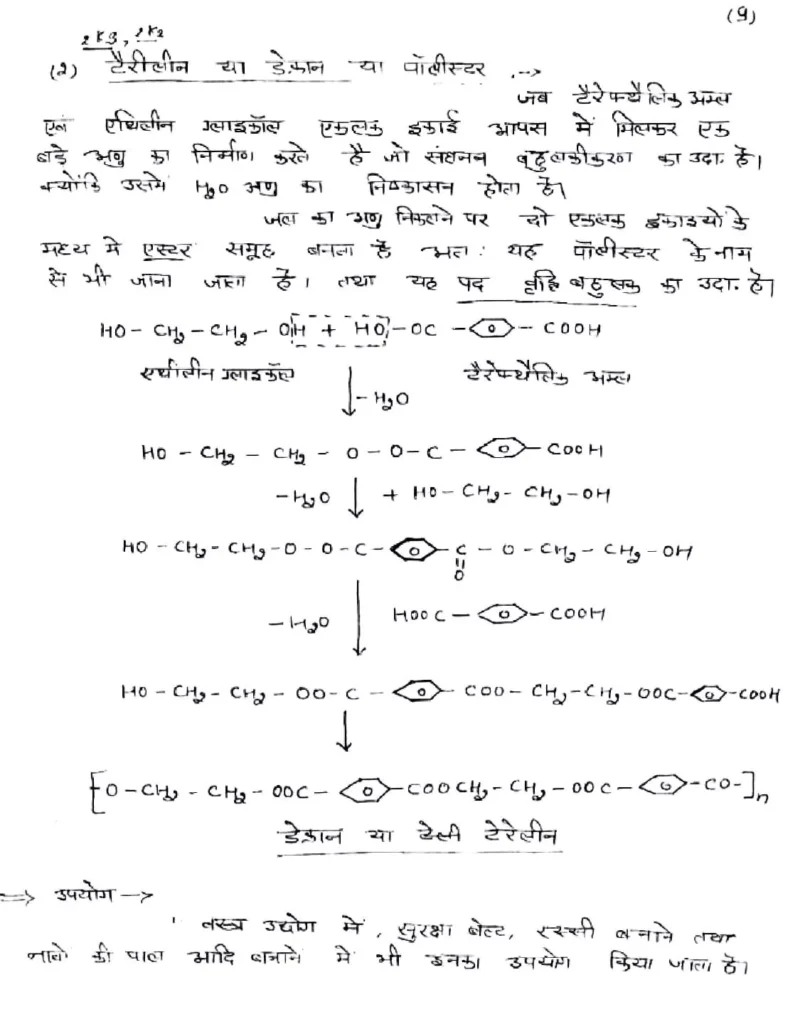 (9)
2K3, 2K2
(2) टैरीलीन या डेक्रान या पॉलीस्टर :->
जब टैरेफ्थैलिक अम्ल
एवं एथिलीन ग्लाइकॉल एकलक इकाई आपस में मिलकर एक
बड़े अणु का निर्माण करते है जो संघनन बहुलकीकरण का उदा. है।
क्योंकि उसमें H2O अणु का निष्कासन होता है।
जल का अणु निकलने पर दो एकलक इकाइयों के
मध्य मे एस्टर समूह बनता है अतः यह पॉलीस्टर के नाम
से भी जाना जाता है। तथा यह पद वृद्धि बहुलक का उदा. है।
HO - CH2 - CH2 - OH + HO - OC - O - COOH
एथीलीन ग्लाइकॉल टैरेफ्थैलिक अम्ल
- H2O
HO - CH2 - CH2 - O - O - C - O - COOH
- H2O + HO - CH2 - CH2 - OH
HO - CH2 - CH2 - O - O - C - O - C - O - CH2 - CH2 - OH
O
- H2O HOOC - O - COOH
HO - CH2 - CH2 - OO - C - O - COO - CH2 - CH2 - OOC - O - COOH
[O - CH2 - CH2 - OOC - O - COOCH2 - CH2 - OOC - O - CO -]n
डेक्रान या टेरेलीन
=> उपयोग ->
वस्त्र उद्योग में, सुरक्षा बेल्ट, रस्सी बनाने तथा
नावो की पाल आदि बनाने में भी इनका उपयोग किया जाता है।